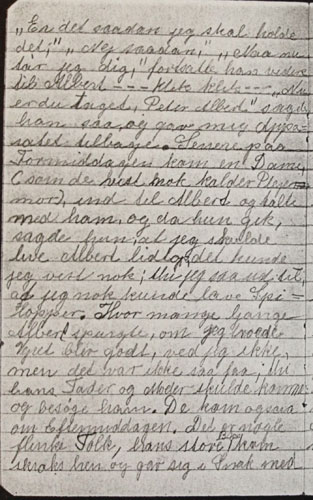 "En det saadan jeg skal holde
det;" "Nej saadan," "Naa nu
tar jeg dig," fortsatte han videre
til Albert --- klik klik --- "Nu
er du taget, Peter Albert" sagde
han saa, og gav mig Appa-
ratet tilbage. Senere paa
Formiddagen kom en Dame,
(som de vist nok kalder Plejer-
mor), ind til Albert og talte
med ham, og da hun gik,
sagde hun, at jeg skulde
live Albert lidt op det kunde
jeg vist nok; thi jeg saa ud til,
at jeg nok kunde lave Spi-
lopper. Hvor mange Gange
Albert spurgte, om jeg troede
Vejret blev godt, ved jeg ikke,
men det var ikke saa faa; thi
hans Fader og Moder skulde komme
og besøge ham. De kom ogsaa
om Eftermiddagen. Det er nogle
flinke Folk, hans store Bror kom
straks hen og gav sig i Snak med